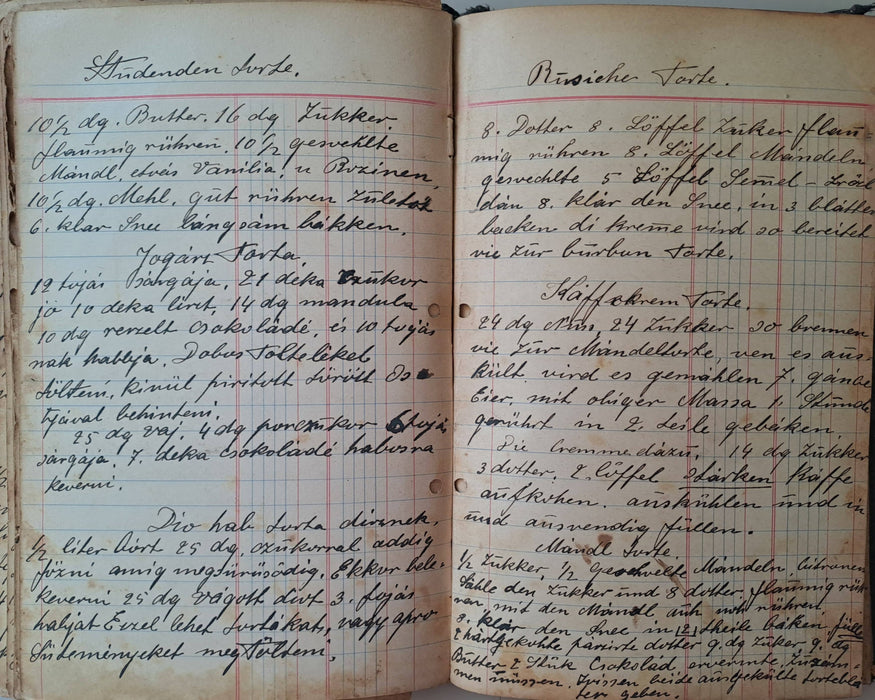 Studenden torte.
10½ dg. Butter. 16 dg Zukker.
flaumig rühren. 10½ geswehlte
Mandl, etvás Vanilia, u Rozinen,
10½ dg. Mehl, gut rühren zuletst
6. klar Snee lángsám bákken.
Jogárt Torta.
12 tojás sárgája. 21 deka czukor
jó 10 deka liszt, 14 dg mandula
10 dg reszelt csokoládé, és 10 tojás
nak habbja. Dobos Töltelékel
tölteni, kivül pirított törött
tjával behinteni.
25 dg vaj. 4 dg porczukor 6 tojás
sárgája. 7. deka csokoládé habosra
keverni.
Dio hab torta
½ liter 25 dg. czukorral addig
főzni amig megsürüsödig. Ekkor bele-
keverni 25 dg vágott diót 3.
habját Ezzel lehet tortákat, vagy apro
Süteményeket megTölteni.
Rusicher Torte.
8. Dotter 8. Löffel Zuker flau-
mig rühren 8. Löffel Mandeln
geswechlte 5 Löffel Semel-
dán 8. klár den Snee, in 3 blätter
backen di kreme vird so bereitet
vie zur burbon Torte.
Káffekrem Torte.
24 dg Nuss, 24 Zukker so brennen
vie zur Mándeltorte, ven es aus-
kült vird es gemáhlen 7. gánze
Eier, mit obiger Massa 1. Stunde
gerührt in 2. teile gebäken.
Die Cremme dázu. 14 dg Zukker
3 dotter, 2. löffel stárken Káffe
aufkohen. auskühlen und in
und ausvendig füllen.
Mandl Torte.
½ Zukker, ½ geschwelte Mandeln, Citronen
Shále den Zukker und 8 dotter, flaumig rüh
ren, mit den Mandl, auch noh rühren
8. klár den Snee in 2 theile báken, fülle
2 hártgekohte pasirte dotter 9. dg Zuker 9. dg
Butter 2 Stük Csokolad, ervermte, Zusam-
men müssen. Zvissen beide ausgekülte torteblä
ter geben.